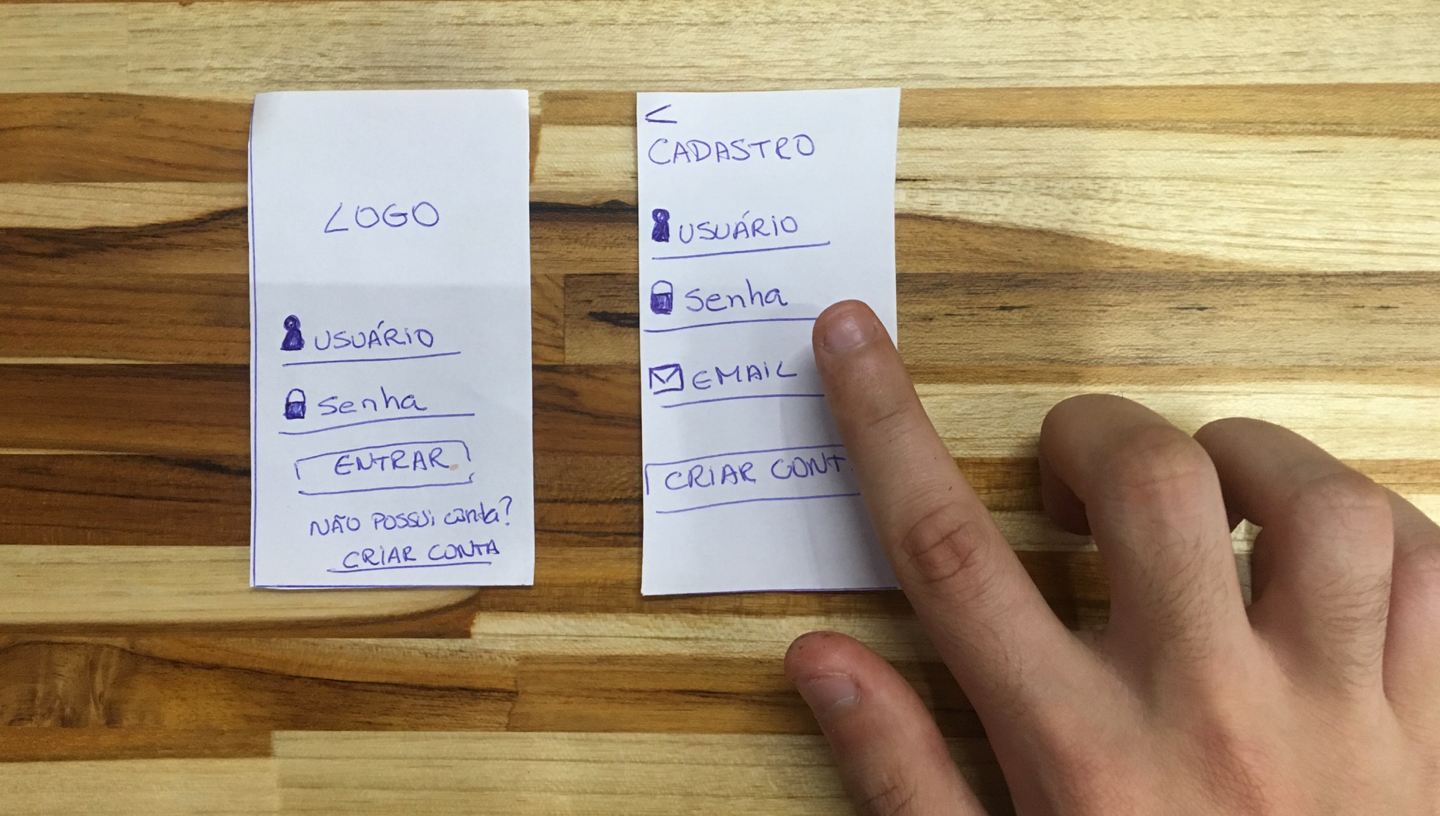 LOGO
USUÁRIO
senha
ENTRAR
NÃO POSSUi conta?
CRIAR CONTA
<
CADASTRO
USUÁRIO
senha
EMAIL
CRIAR CONT